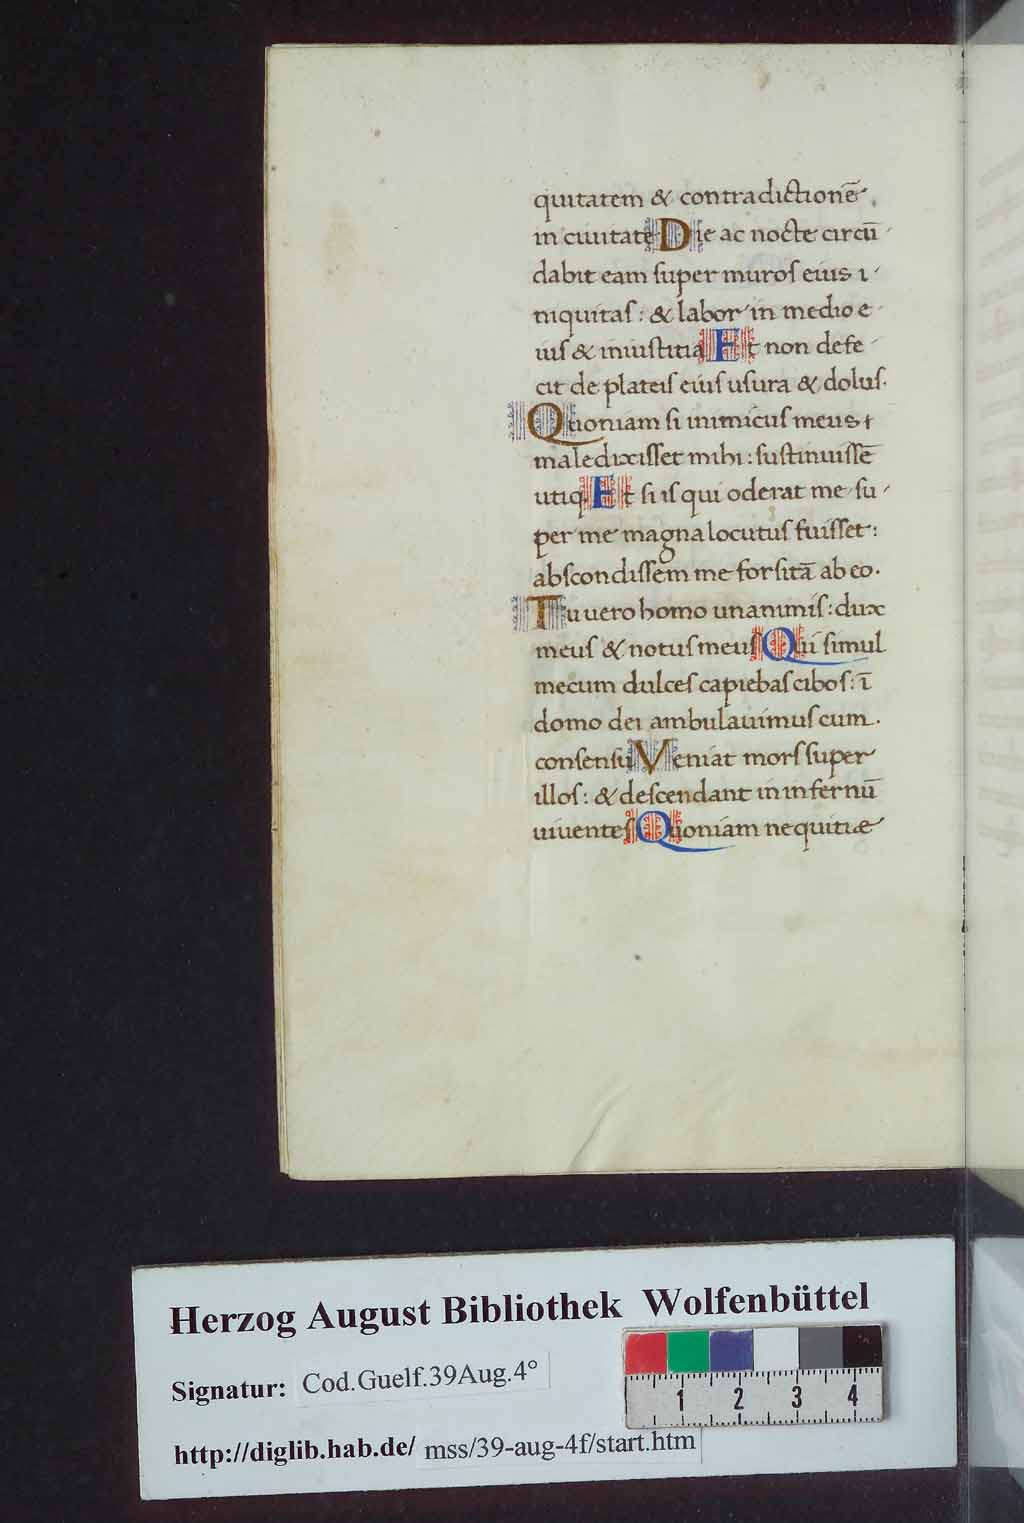 quitatem & contradictionē
in ciuitate Die ac nocte circū
dabit eam super muros eius i
niquitas: & labor in medio e
ius & iniustitia Et non defe
cit de plateis eius usura & dolus.
Quoniam si inimicus meus
maledixisset mihi: sustinuissē
utiq. Et si is qui oderat me su
per me magna locutus fuisset:
abscondissem me forsitā ab eo.
Tu uero homo unanimis: dux
meus & notus meus Qui simul
mecum dulces capiebas cibos: ī
domo dei ambulauimus cum.
consensu Veniat mors super
illos: & descendant in infernū
uiuentes Quoniam nequitiæ
Herzog August Bibliothek Wolfenbüttel
Signatur: Cod.Guelf.39Aug.4°
1 2 3 4
http://diglib.hab.de/ mss/39-aug-4f/start.htm